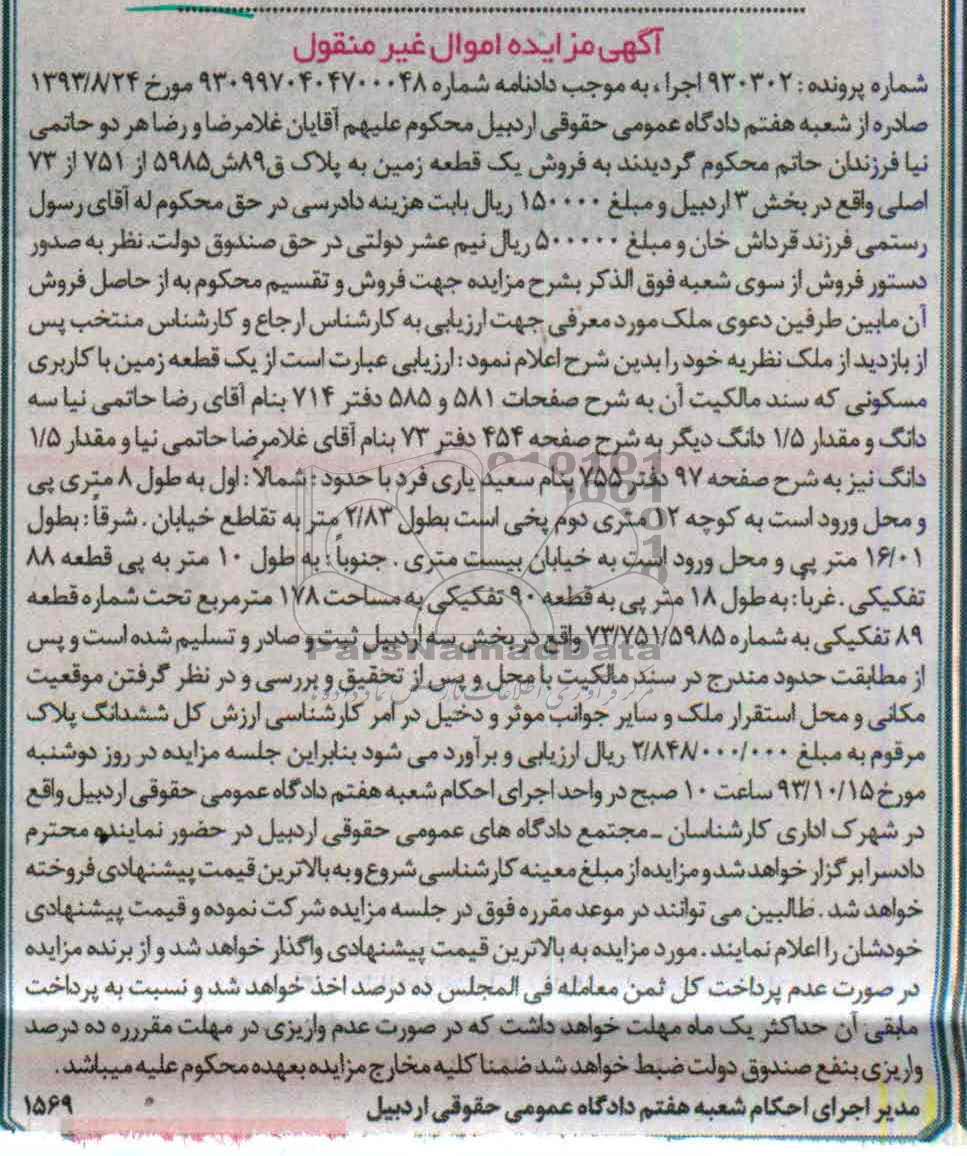 آگهی مزایده اموال غیر منقول
شماره پرونده : ۹۳۰۳۰۲ اجرا ، به موجب دادنامه شماره ۹۳۰۹۹۷۰۴۰۴۷۰۰۰۴۸ مورخ ۱۳۹۳/۸/۲۴
صادره از شعبه هفتم دادگاه عمومی حقوقی اردبیل محکوم علیهم آقایان غلامرضا و رضا هر دو حاتمی
نیا فرزندان حاتم محکوم گردیدند به فروش یک قطعه زمین به پلاک ق۸۹ش۵۹۸۵ از ۷۵۱ از ۷۳
اصلی واقع در بخش ۳ اردبیل و مبلغ ۱۵۰۰۰۰ ریال بابت هزینه دادرسی در حق محکوم له آقای رسول
رستمی فرزند قرداش خان و مبلغ ۵۰۰۰۰۰ ریال نیم عشر دولتی در حق صندوق دولت. نظر به صدور
دستور فروش از سوی شعبه فوق الذکر بشرح مزایده جهت فروش و تقسیم محکوم به از حاصل فروش
آن مابین طرفین دعوی ،ملک مورد معرفی جهت ارزیابی به کارشناس ارجاع و کارشناس منتخب پس
از بازدید از ملک نظریه خود را بدین شرح اعلام نمود : ارزیابی عبارت است از یک قطعه زمین با کاربری
مسکونی که سند مالکیت آن به شرح صفحات ۵۸۱ و ۵۸۵ دفتر ۷۱۴ بنام آقای رضا حاتمی نیا سه
دانگ و مقدار ۱/۵ دانگ دیگر به شرح صفحه ۴۵۴ دفتر ۷۳ بنام آقای غلامرضا حاتمی نیا و مقدار ۱/۵
دانگ نیز به شرح صفحه ۹۷ دفتر ۷۵۵ بنام سعید یاری فرد با حدود : شمالا : اول به طول ۸ متری پی
و محل ورود است به کوچه ۱۲ متری دوم پخی است بطول ۲/۸۳ متر به تقاطع خیابان . شرقاً : بطول
۱۶/۰۱ متر پی و محل ورود است به خیابان بیست متری . جنوباً : به طول ۱۰ متر به پی قطعه ۸۸
تفکیکی . غربا : به طول ۱۸ متر پی به قطعه ۹۰ تفکیکی به مساحت ۱۷۸ مترمربع تحت شماره قطعه
۸۹ تفکیکی به شماره ۷۳/۷۵۱/۵۹۸۵ واقع در بخش سه اردبیل ثبت و صادر و تسلیم شده است و پس
ParsNamadData
از مطابقت حدود مندرج در سند مالکیت با محل و پس از تحقیق و بررسی و در نظر گرفتن موقعیت
مکانی و محل استقرار ملک و سایر جوانب موثر و دخیل در امر کارشناسی ارزش کل ششدانگ پلاک
مرقوم به مبلغ ۲/۸۴۸/۰۰۰/۰۰۰ ریال ارزیابی و برآورد می شود بنابراین جلسه مزایده در روز دوشنبه
مورخ ۹۳/۱۰/۱۵ ساعت ۱۰ صبح در واحد اجرای احکام شعبه هفتم دادگاه عمومی حقوقی اردبیل واقع
در شهرک اداری کارشناسان ـ مجتمع دادگاه های عمومی حقوقی اردبیل در حضور نماینده محترم
دادسرا برگزار خواهد شد و مزایده از مبلغ معینه کارشناسی شروع و به بالاترین قیمت پیشنهادی فروخته
خواهد شد . طالبین می توانند در موعد مقرره فوق در جلسه مزایده شرکت نموده و قیمت پیشنهادی
خودشان را اعلام نمایند . مورد مزایده به بالاترین قیمت پیشنهادی واگذار خواهد شد و از برنده مزایده
در صورت عدم پرداخت کل ثمن معامله فی المجلس ده درصد اخذ خواهد شد و نسبت به پرداخت
مابقی آن حداکثر یک ماه مهلت خواهد داشت که در صورت عدم واریزی در مهلت مقررره ده درصد
واریزی بنفع صندوق دولت ضبط خواهد شد ضمنا کلیه مخارج مزایده بعهده محکوم علیه میباشد .
مدیر اجرای احکام شعبه هفتم دادگاه عمومی حقوقی اردبیل
۱۵۶۹